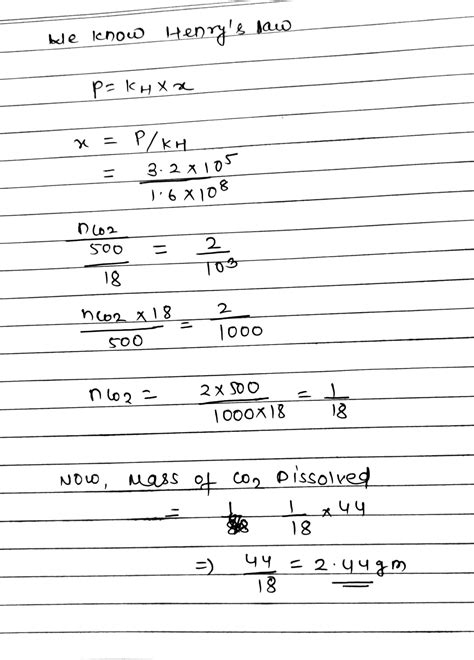 We know Henry's law
P = KH × x
x = P/KH
= 3.2 × 10⁵ / 1.6 × 10⁸
nco2 / (500 / 18) = 2 / 10³
nco2 × 18 / 500 = 2 / 1000
nco2 = 2 × 500 / 1000 × 18 = 1 / 18
Now, Mass of CO₂ Dissolved
= 1 / 18 × 44
⇒ 44 / 18 = 2.44 gm